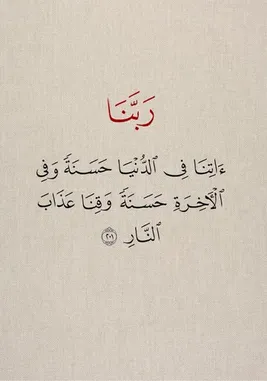 رَبَّنَا
ءَاتِنَا فِى ٱلدُّنْيَا حَسَنَةً وَفِى
ٱلْءَاخِرَةِ حَسَنَةً وَقِنَا عَذَابَ
ٱلنَّارِ ٢٠١